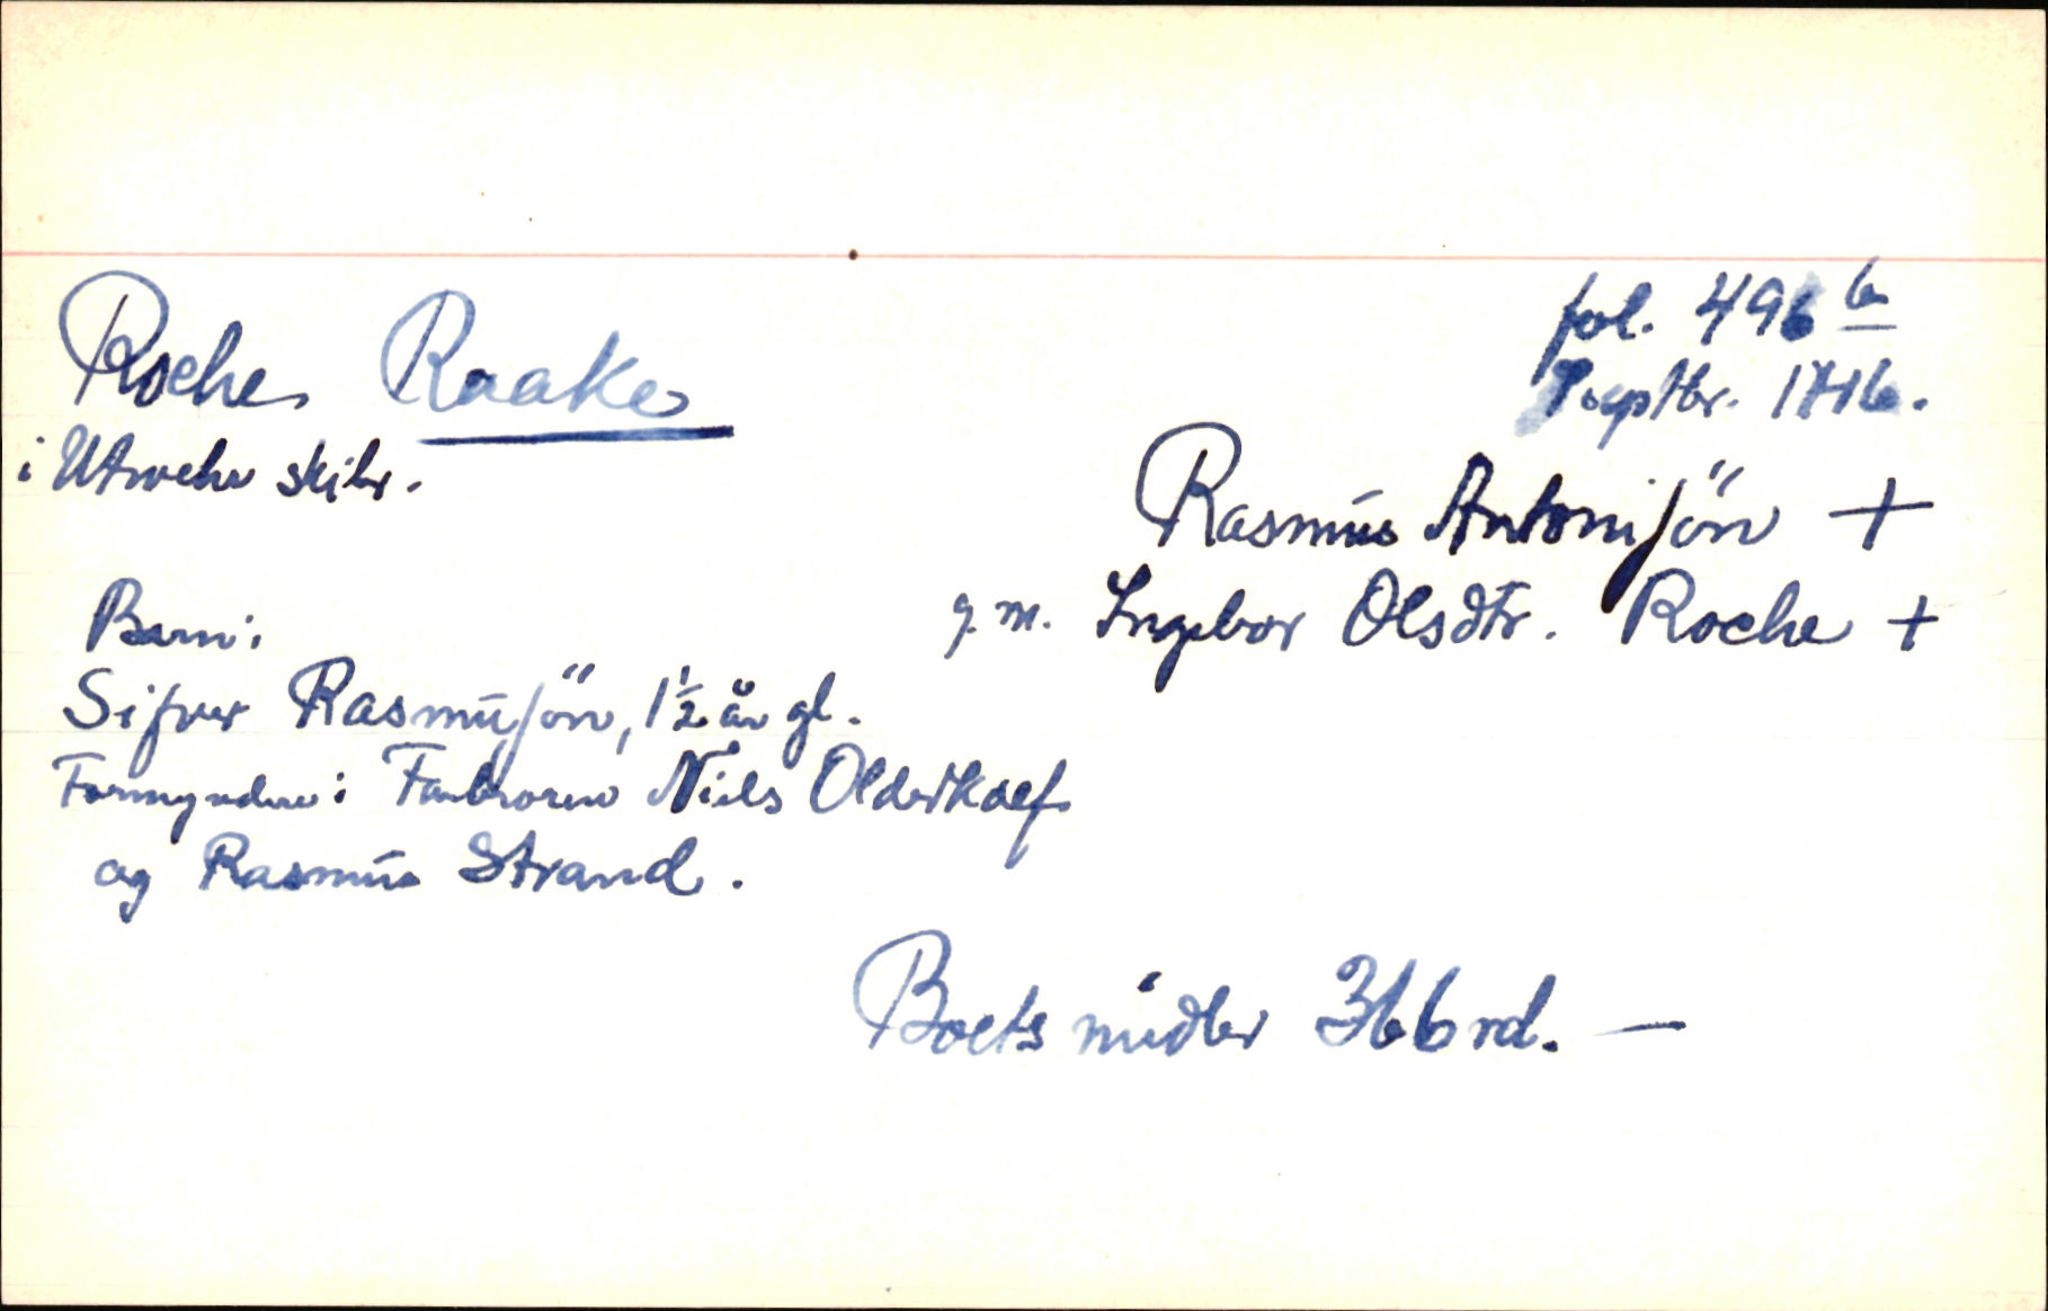 Roche Raake
fol. 496 b
septbr. 1746.
i Utvoche skibr.
Rasmus Antonisön +
g. m. Ingebor Olsdtr. Roche +
Barn:
Sifver Rasmusön, 1½ år gl.
Formyndere: Farbroren Niels Olderkaef
og Rasmus Strand.
Boets midler 366 rd. —